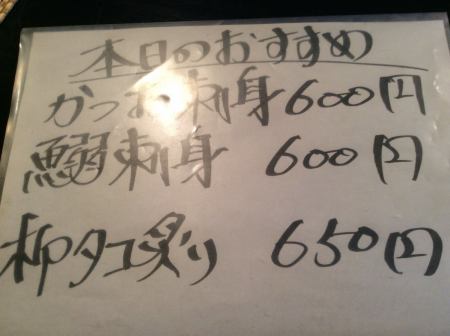 本日のおすすめ
かつお刺身 600円
鰯刺身 600円
柳タコ炙り 650円